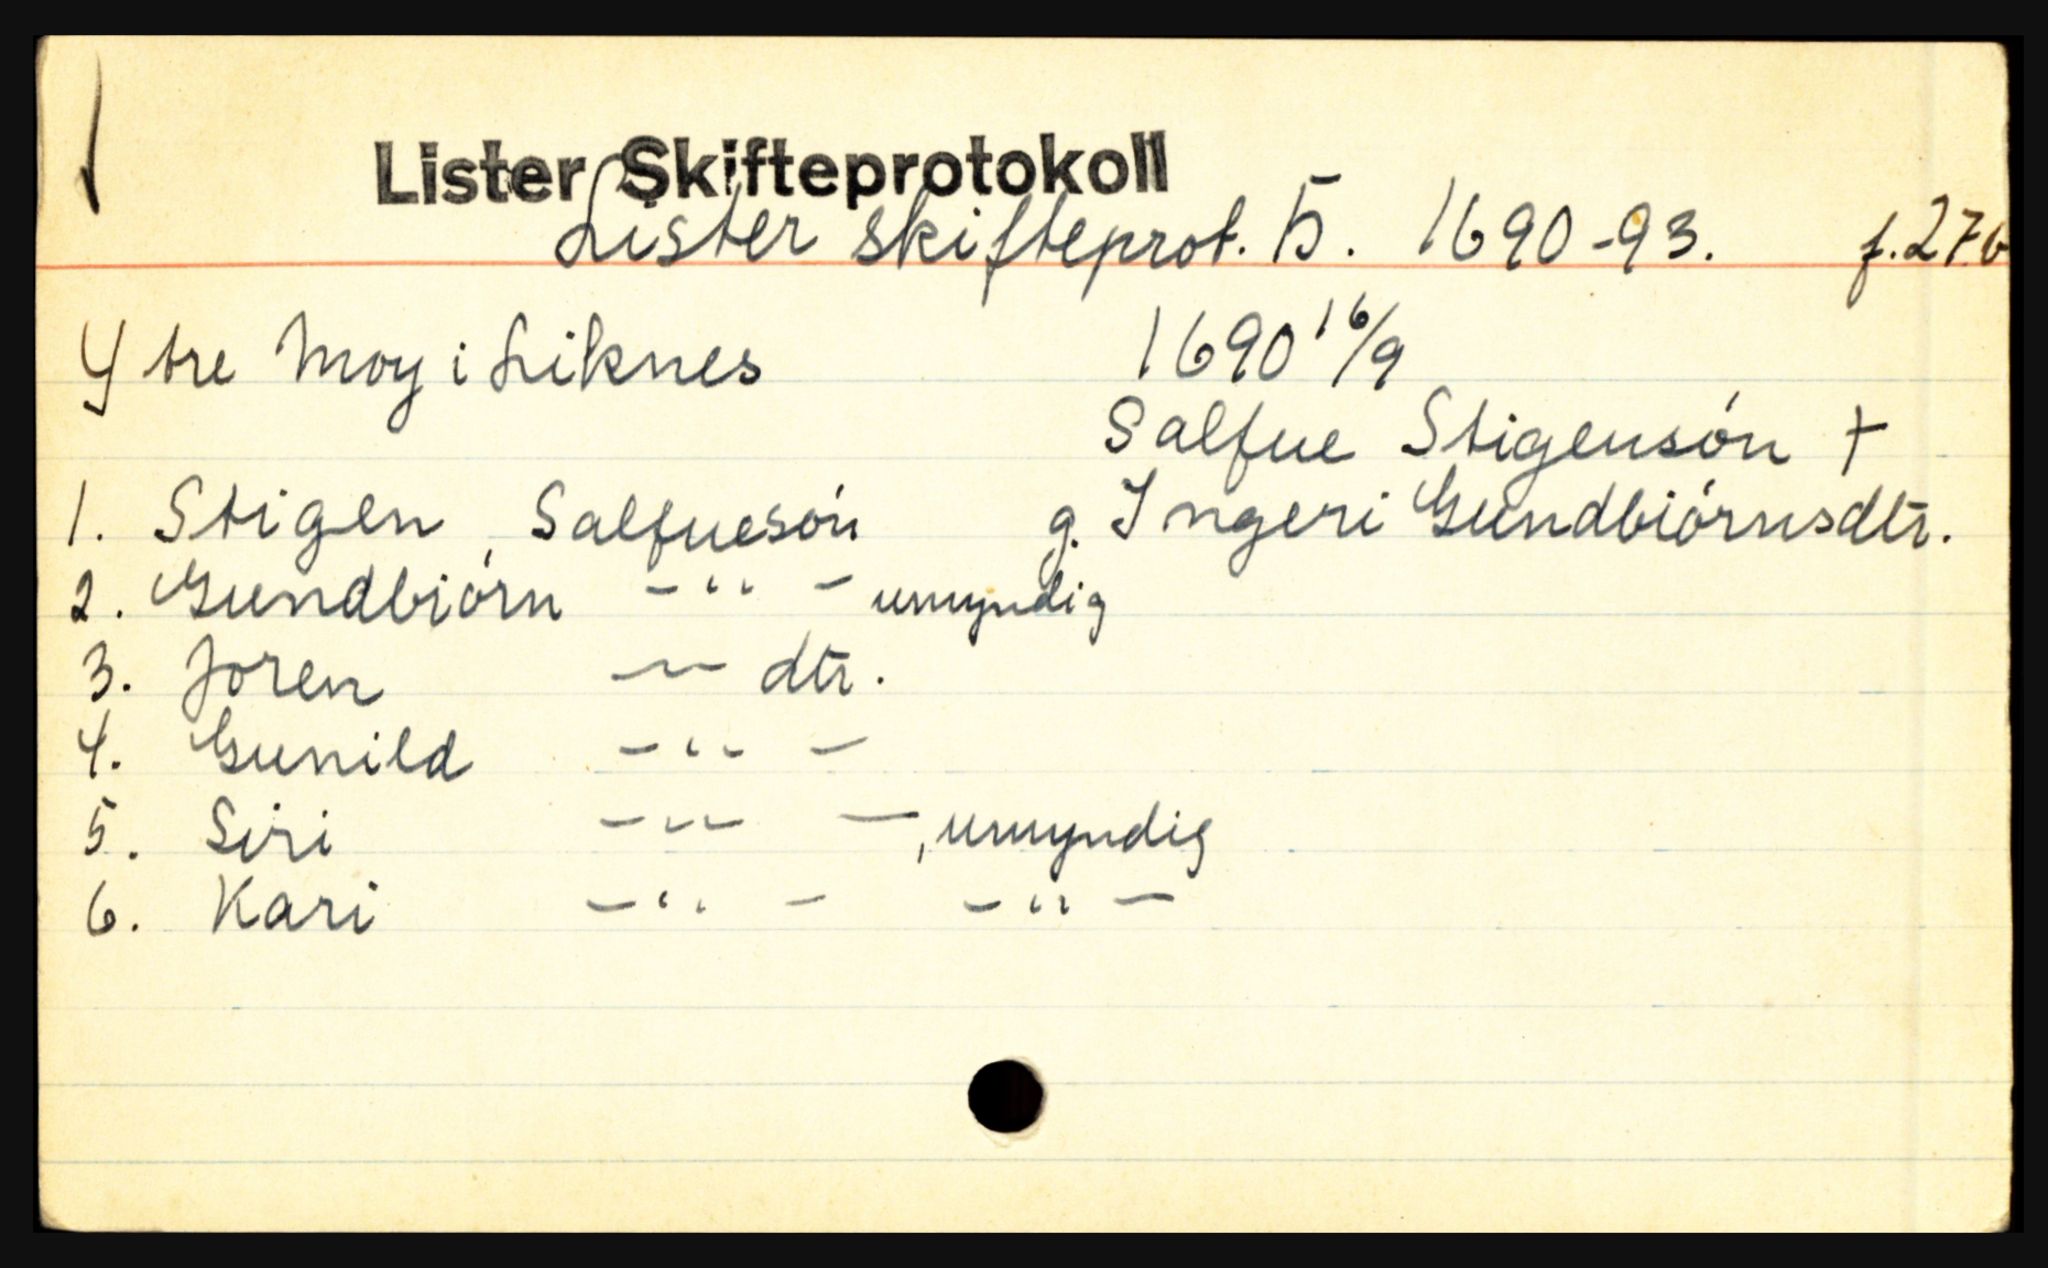 Lister Skifteprotokoll
Lister skifteprot. 5. 1690-93. f.27b
Ytre Moy i Liknes 1690 16/9
Salfue Stigensón +
1. Stigen, Salfuesón g. Ingeri Gundbiórnsdtr.
2. Gundbiórn -"- umyndig
3. Joren -"- dtr.
4. Gunild -"- -
5. Siri -"- -, umyndig
6. Kari -"- - -"-